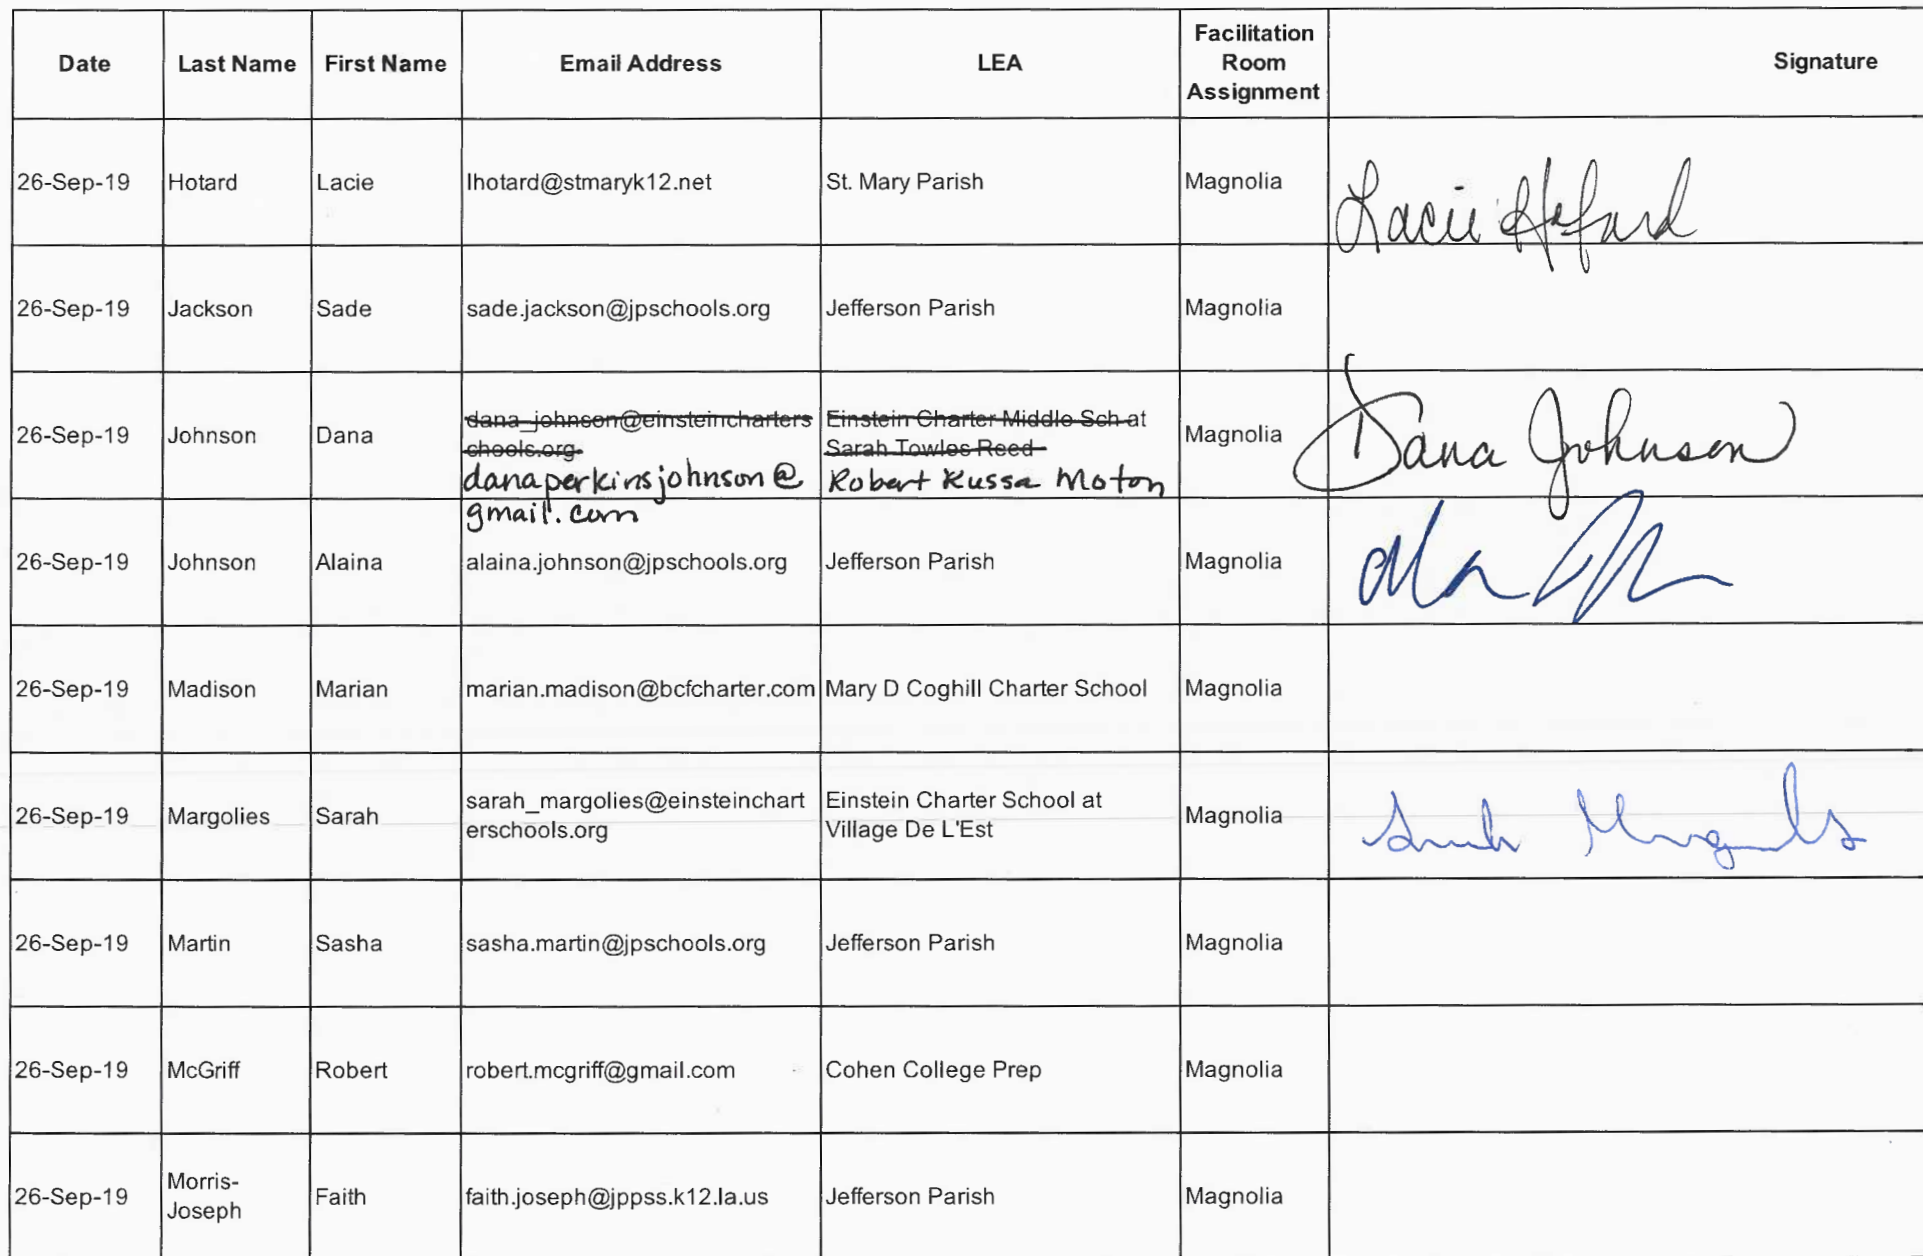 Date Last Name First Name Email Address LEA Facilitation Room Assignment Signature
26-Sep-19 Hotard Lacie lhotard@stmaryk12.net St. Mary Parish Magnolia Lacie Hotard
26-Sep-19 Jackson Sade sade.jackson@jpschools.org Jefferson Parish Magnolia
26-Sep-19 Johnson Dana dana_johnson@einsteincharters Einstein Charter Middle Sch at Magnolia Dana Johnson
chools.org Sarah Towles Reed
danaperkinsjohnson@ Robert Russa Moton
gmail.com
26-Sep-19 Johnson Alaina alaina.johnson@jpschools.org Jefferson Parish Magnolia
26-Sep-19 Madison Marian marian.madison@bcfcharter.com Mary D Coghill Charter School Magnolia
26-Sep-19 Margolies Sarah sarah_margolies@einsteinchart Einstein Charter School at Magnolia Sarah Margolies
erschools.org Village De L'Est
26-Sep-19 Martin Sasha sasha.martin@jpschools.org Jefferson Parish Magnolia
26-Sep-19 McGriff Robert robert.mcgriff@gmail.com Cohen College Prep Magnolia
26-Sep-19 Morris- Faith faith.joseph@jppss.k12.la.us Jefferson Parish Magnolia
Joseph